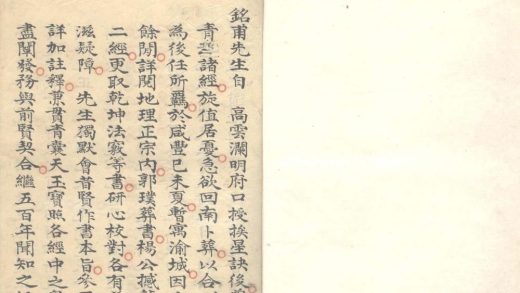 銘甫先生自　高雲瀾明府口授挨星訣後
青囊諸經旋值居憂急欲回南卜葬以合
為後任所羈於咸豐己未夏暫寓渝城因
餘閒詳閱地理正宗內郭璞葬書楊公撼
二經更取乾坤法竅等書研心校對各有
滋疑障　先生獨默會昔賢作書本旨參
詳加註釋兼貫青囊天玉寶照各經中之
盡闡發務與前賢契合繼五百年聞知之